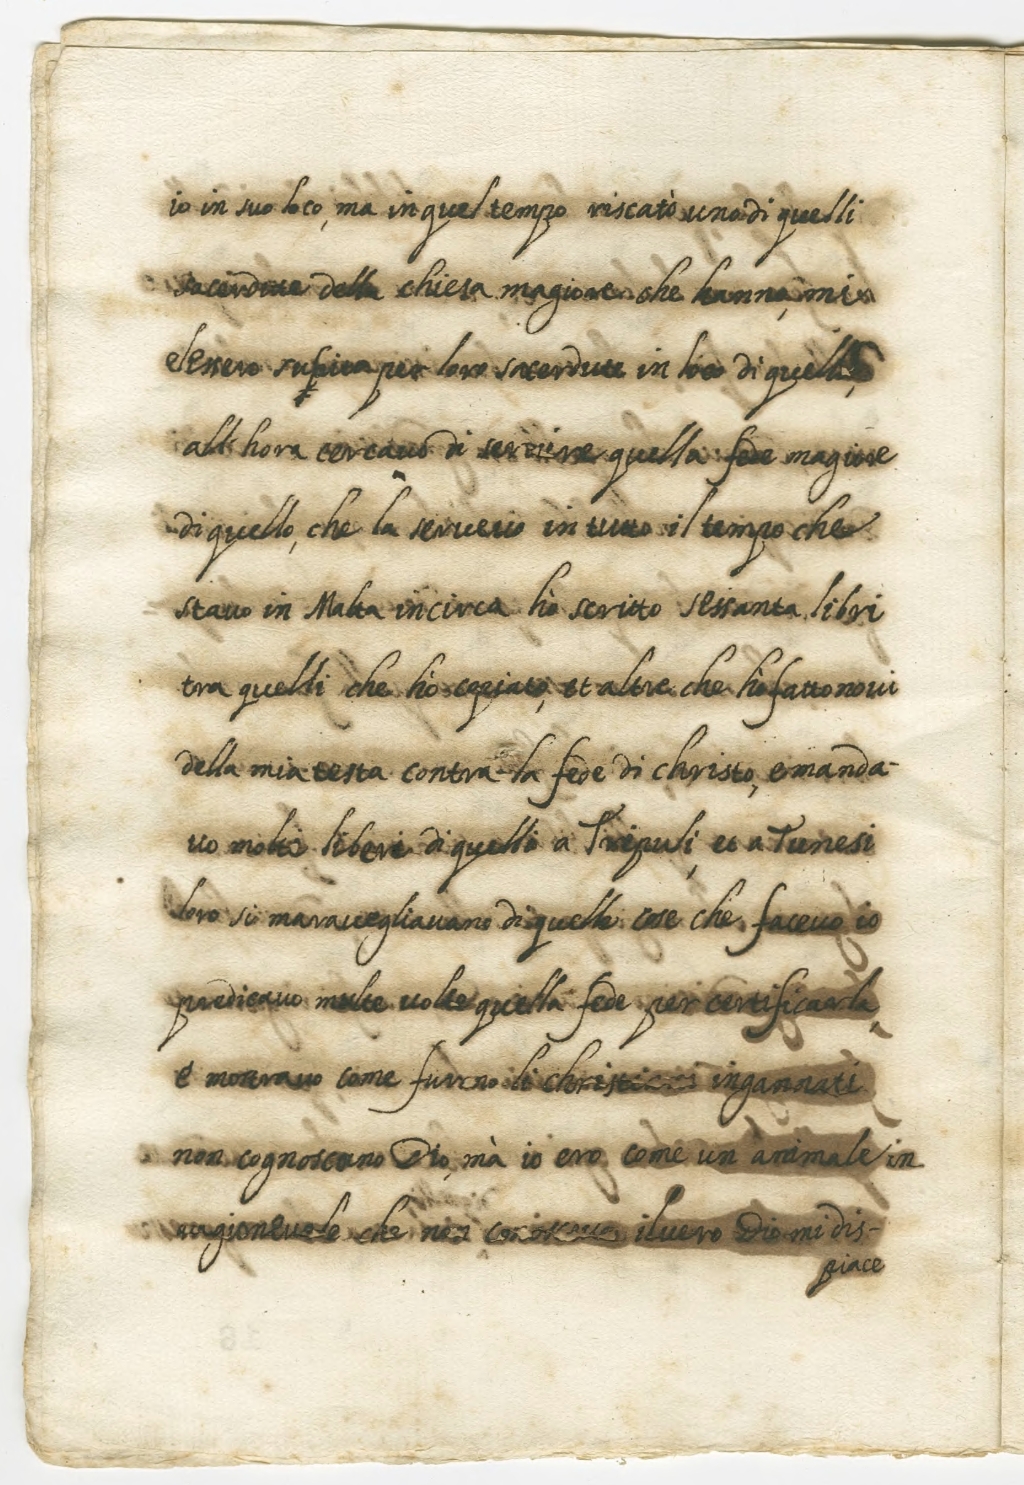 io in suo loco, ma in quel tempo riscatò uno di quelli
sacerdute della chiesa magiore che hanno, mi
elessero supita per loro sacerdute in loco di quello,
all hora cercavo di servire quella fede magiore
di quello, che la servevo in tutto il tempo che
stavo in Malta incirca hò scritto sessanta libri
tra quelli che hò copiato, et altre che hò fatto novi
della mia testa contra la fede di christo, e manda-
vo molti liberi di quelli a Tripuli, et a Tunesi
loro si maravegliavano di quelle cose che facevo io
predicavo multe volte quella fede per certificarla,
e mostravo come furno li christiani ingannati
non cognoscono Dio, mà io ero come un animale in
ragionevole che non il vero Dio mi dis-
piace